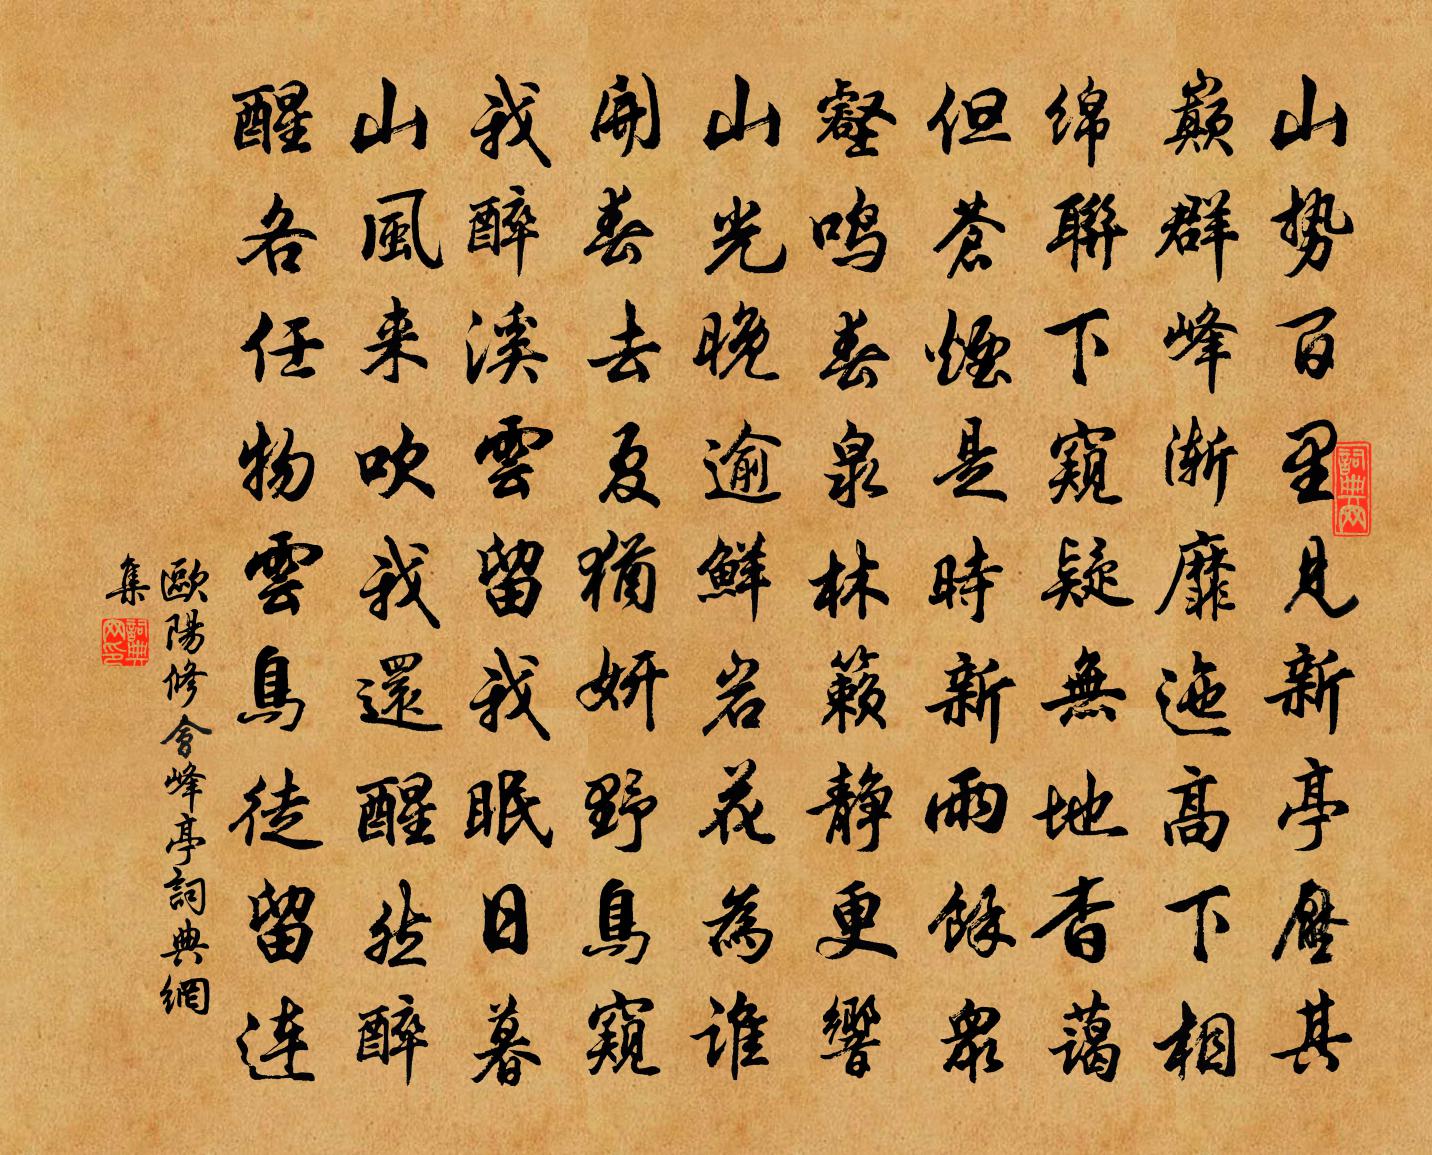 山势百里見新亭壓其
巔群峰漸靡迤高下相
绵聯下窺疑無地杳藹
但蒼煙是時新雨餘眾
壑鳴春泉林籟静更響
山光晚逾鮮岩花為誰
開春去夏猶妍野鳥窺
我醉溪雲留我眠日暮
山風来吹我還醒然醉
醒各任物雲鳥徒留连
歐陽修會峰亭詞典網
集
詞典网
詞典网印